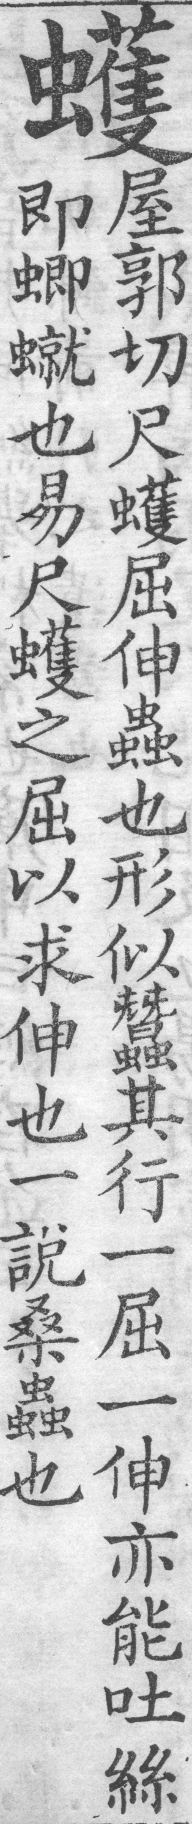 蠖
屋郭切尺蠖屈伸蟲也形似蠶其行一屈一伸亦能吐絲
即蝍𧑙也易尺蠖之屈以求伸也一說桑蟲也